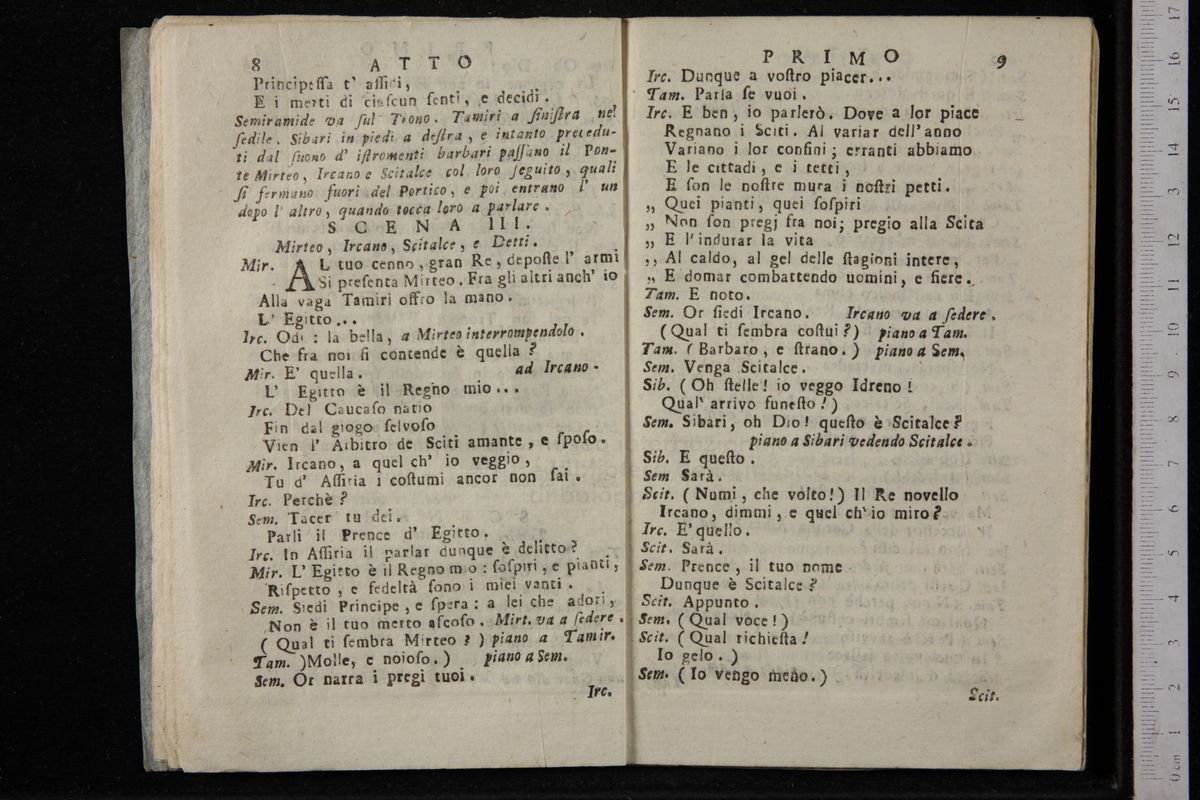 8 ATTO
Principeſſa t' aſſidi,
E i merti di ciaſcun ſenti, e decidi.
Semiramide va ſul Trono. Tamiri a ſiniſtra nel
ſedile. Sibari in piedi a deſtra, e intanto precedu-
ti dal ſuono d' iſtromenti barbari paſſano il Pon-
te Mirteo, Ircano e Scitalce col loro ſeguito, quali
ſi fermano fuori del Portico, e poi entrano l' un
dopo l' altro, quando tocca loro a parlare.
SCENA III.
Mirteo, Ircano, Scitalce, e Detti.
Mir. AL tuo cenno, gran Re, depoſte l' armi
Si preſenta Mirteo. Fra gli altri anch' io
Alla vaga Tamiri offro la mano.
L' Egitto...
Irc. Odi: la bella, a Mirteo interrompendolo.
Che fra noi ſi contende è quella?
Mir. E' quella. ad Ircano.
L' Egitto è il Regno mio...
Irc. Del Caucaſo natio
Fin dal giogo ſelvoſo
Vien l' Arbitro de Sciti amante, e ſpoſo.
Mir. Ircano, a quel ch' io veggio,
Tu d' Aſſiria i coſtumi ancor non ſai.
Irc. Perchè?
Sem. Tacer tu dei.
Parli il Prence d' Egitto.
Irc. In Aſſiria il parlar dunque è delitto?
Mir. L' Egitto è il Regno mio: ſoſpiri, e pianti,
Riſpetto, e fedeltà ſono i miei vanti.
Sem. Siedi Principe, e ſpera: a lei che adori,
Non è il tuo merto aſcoſo. Mirt. va a ſedere.
(Qual ti ſembra Mirteo?) piano a Tamir.
Tam. )Molle, e noioſo.) piano a Sem.
Sem. Or narra i pregi tuoi.
Irc.
PRIMO 9
Irc. Dunque a voſtro piacer...
Tam. Parla ſe vuoi.
Irc. E ben, io parlerò. Dove a lor piace
Regnano i Sciti. Al variar dell' anno
Variano i lor confini; erranti abbiamo
E le cittadi, e i tetti,
E ſon le noſtre mura i noſtri petti.
„ Quei pianti, quei ſoſpiri
„ Non ſon pregj fra noi; pregio alla Scita
„ E l' indurar la vita
,, Al caldo, al gel delle ſtagioni intere,
„ E domar combattendo uomini, e fiere.
Tam. E noto.
Sem. Or ſiedi Ircano. Ircano va a ſedere.
(Qual ti ſembra coſtui?) piano a Tam.
Tam. (Barbaro, e ſtrano.) piano a Sem.
Sem. Venga Scitalce.
Sib. (Oh ſtelle! io veggo Idreno!
Qual' arrivo funeſto!)
Sem. Sibari, oh Dio! queſto è Scitalce?
piano a Sibari vedendo Scitalce.
Sib. E queſto.
Sem Sarà.
Scit. (Numi, che volto!) Il Re novello
Ircano, dimmi, e quel ch' io miro?
Irc. E' quello.
Scit. Sarà.
Sem. Prence, il tuo nome
Dunque è Scitalce?
Scit. Appunto.
Sem. (Qual voce!)
Scit. (Qual richieſta!
Io gelo.)
Sem. (Io vengo meno.)
Scit.
0 cm 1 2 3 4 5 6 7 8 9 10 11 12 13 14 15 16 17